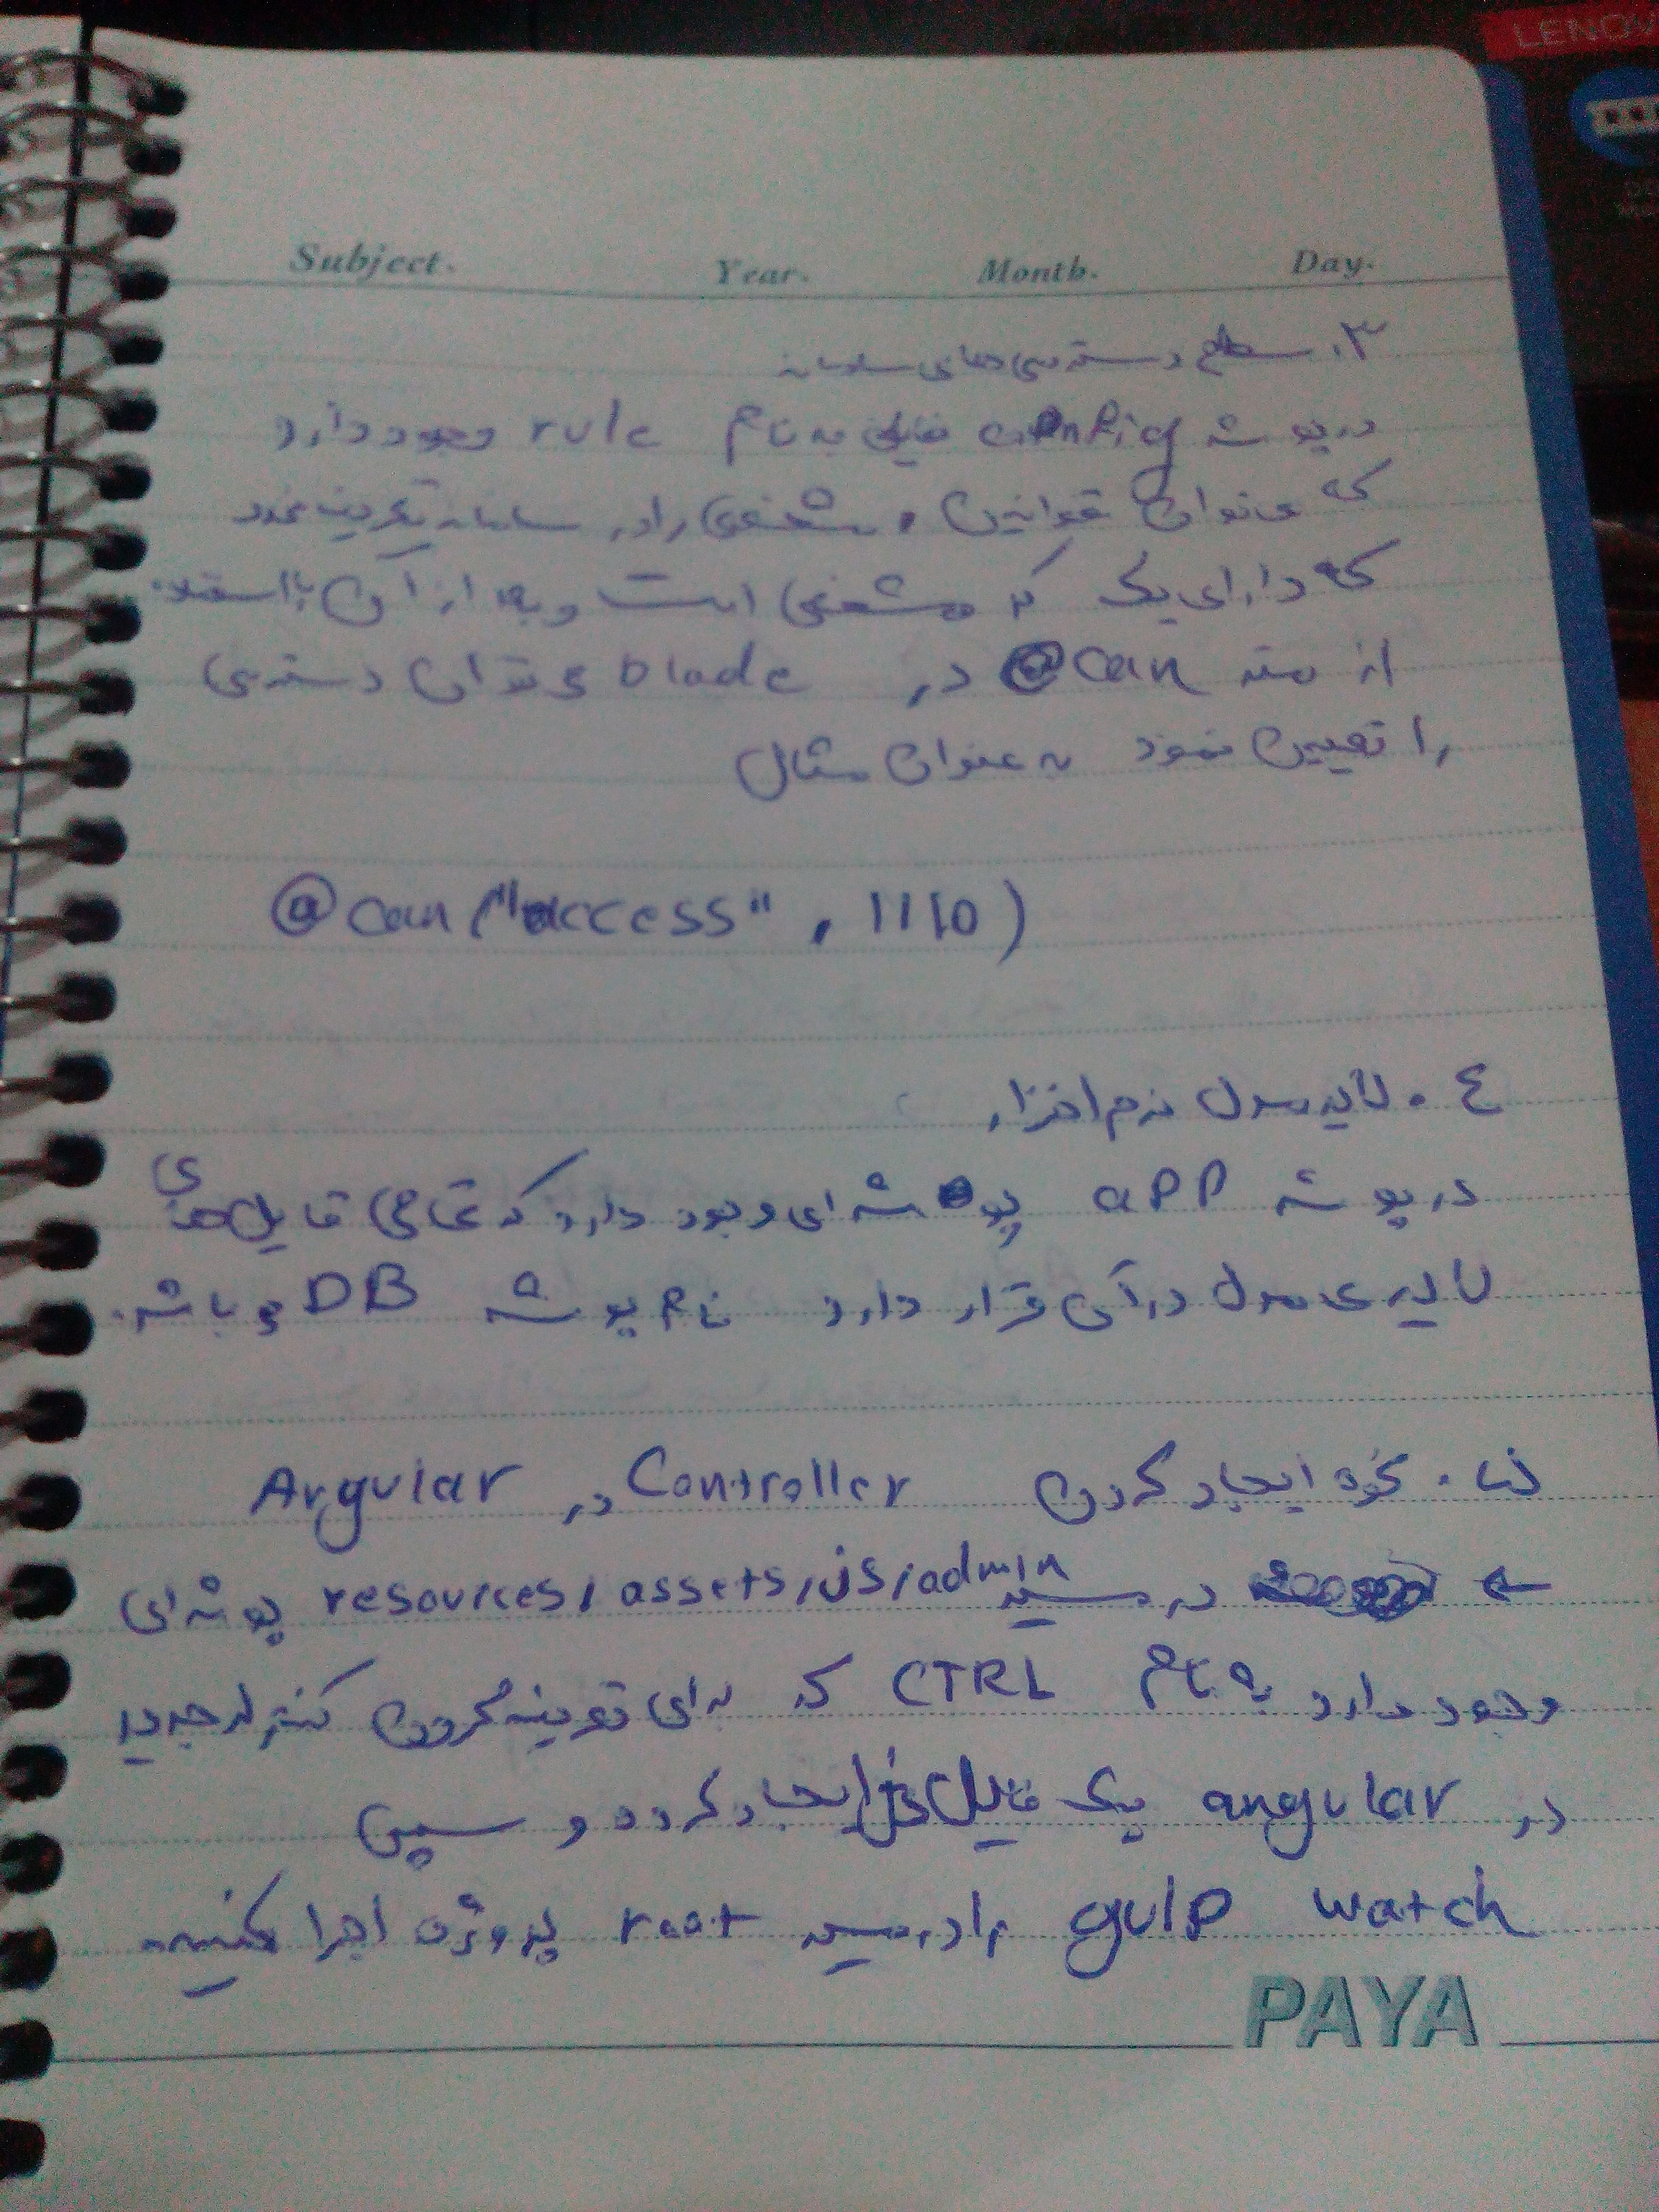 LENOV
Subject. Year. Month. Day.
۳. سطح دسترسی های سامانه
در پوشه config فایلی به نام rule وجود دارد
که عنوان قوانین مشخصی را در سامانه تعریف نمود
که دارای یک کد مشخصی است و بعد از آن با استفاده
از متد @can در blade می توان دسترسی
را تعیین نمود به عنوان مثال
@can("access" , 1110)
٤. لایه مدل نرم افزار
در پوشه app پوشه ای وجود دارد که تمامی فایل های
لایه ی مدل در آن قرار دارد نام پوشه DB می باشد.
نحوه ایجاد کردن Controller در Angular
← در مسیر resources/assets/js/admin پوشه ای
وجود دارد به نام CTRL که برای تعریف کردن کنترلر جدید
در angular یک فایل ایجاد کرده و سپس
gulp watch را در مسیر root پروژه اجرا کنید
PAYA